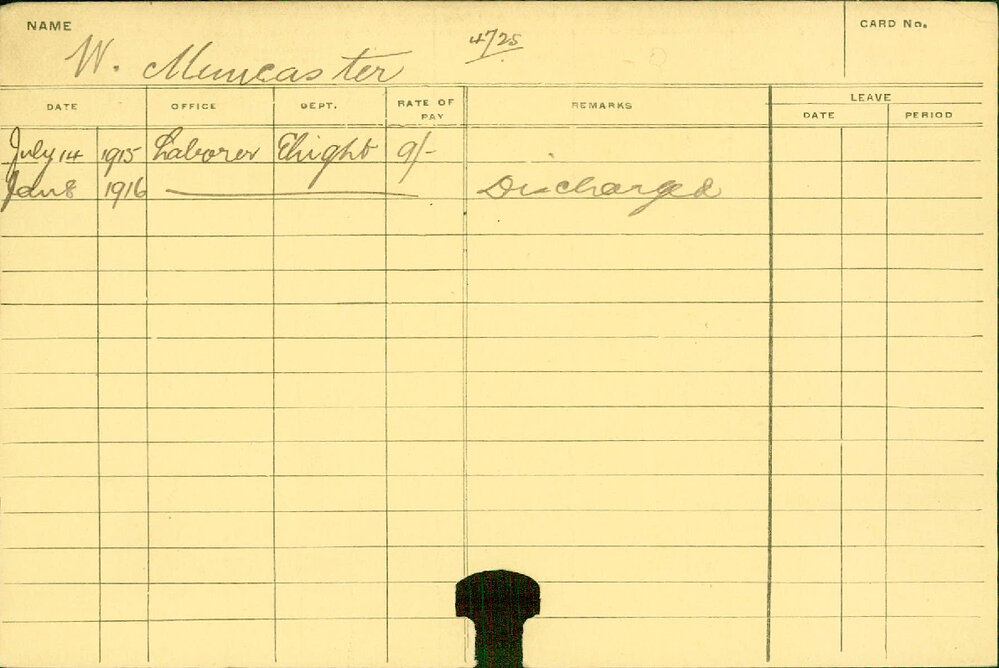 NAME W. Muncaster 4725 CARD No.
DATE OFFICE DEPT. RATE OF PAY REMARKS LEAVE
DATE PERIOD
July 14 1915 Laborer Elright 9/-
Jan 8 1916 Discharged